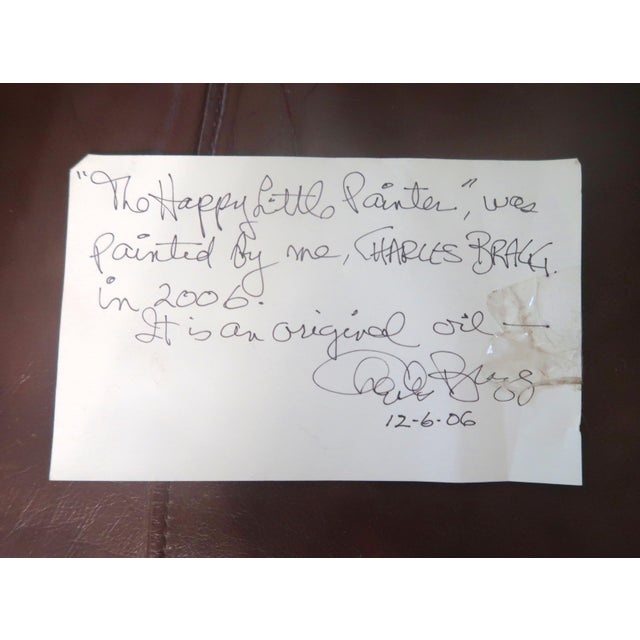 "The Happy Little Painter", was
painted by me, CHARLES BRAGG.
in 2006.
It is an original oil —
Charles Bragg
12-6-06